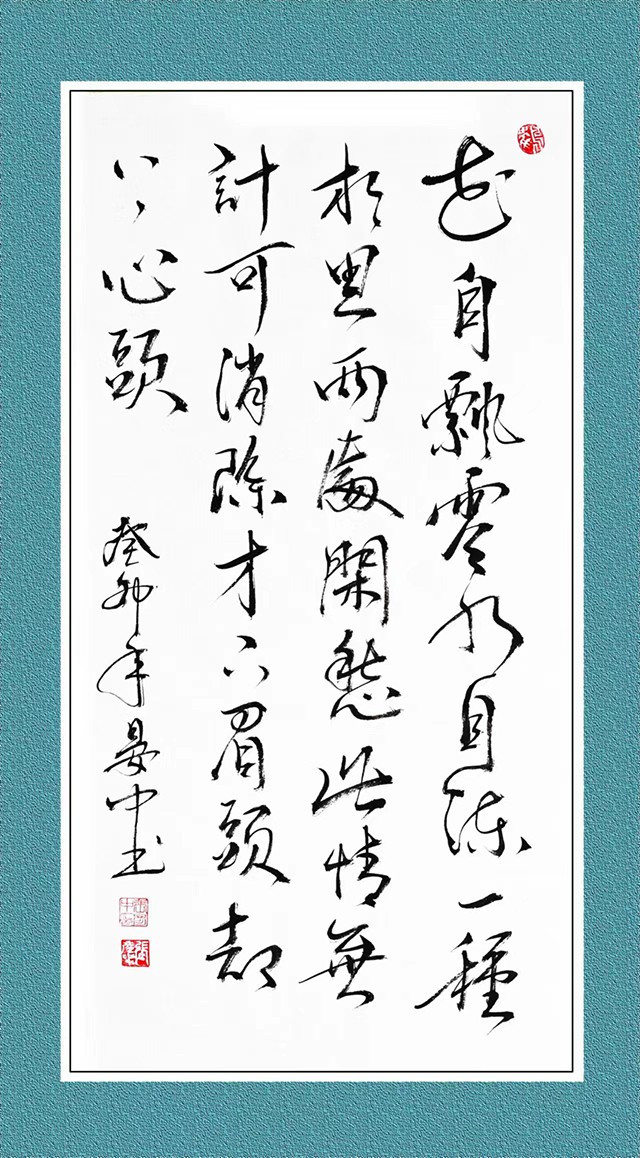 花自飄零水自流一種
相思兩處閑愁此情無
計可消除才下眉頭却
上心頭
癸卯年晏中书